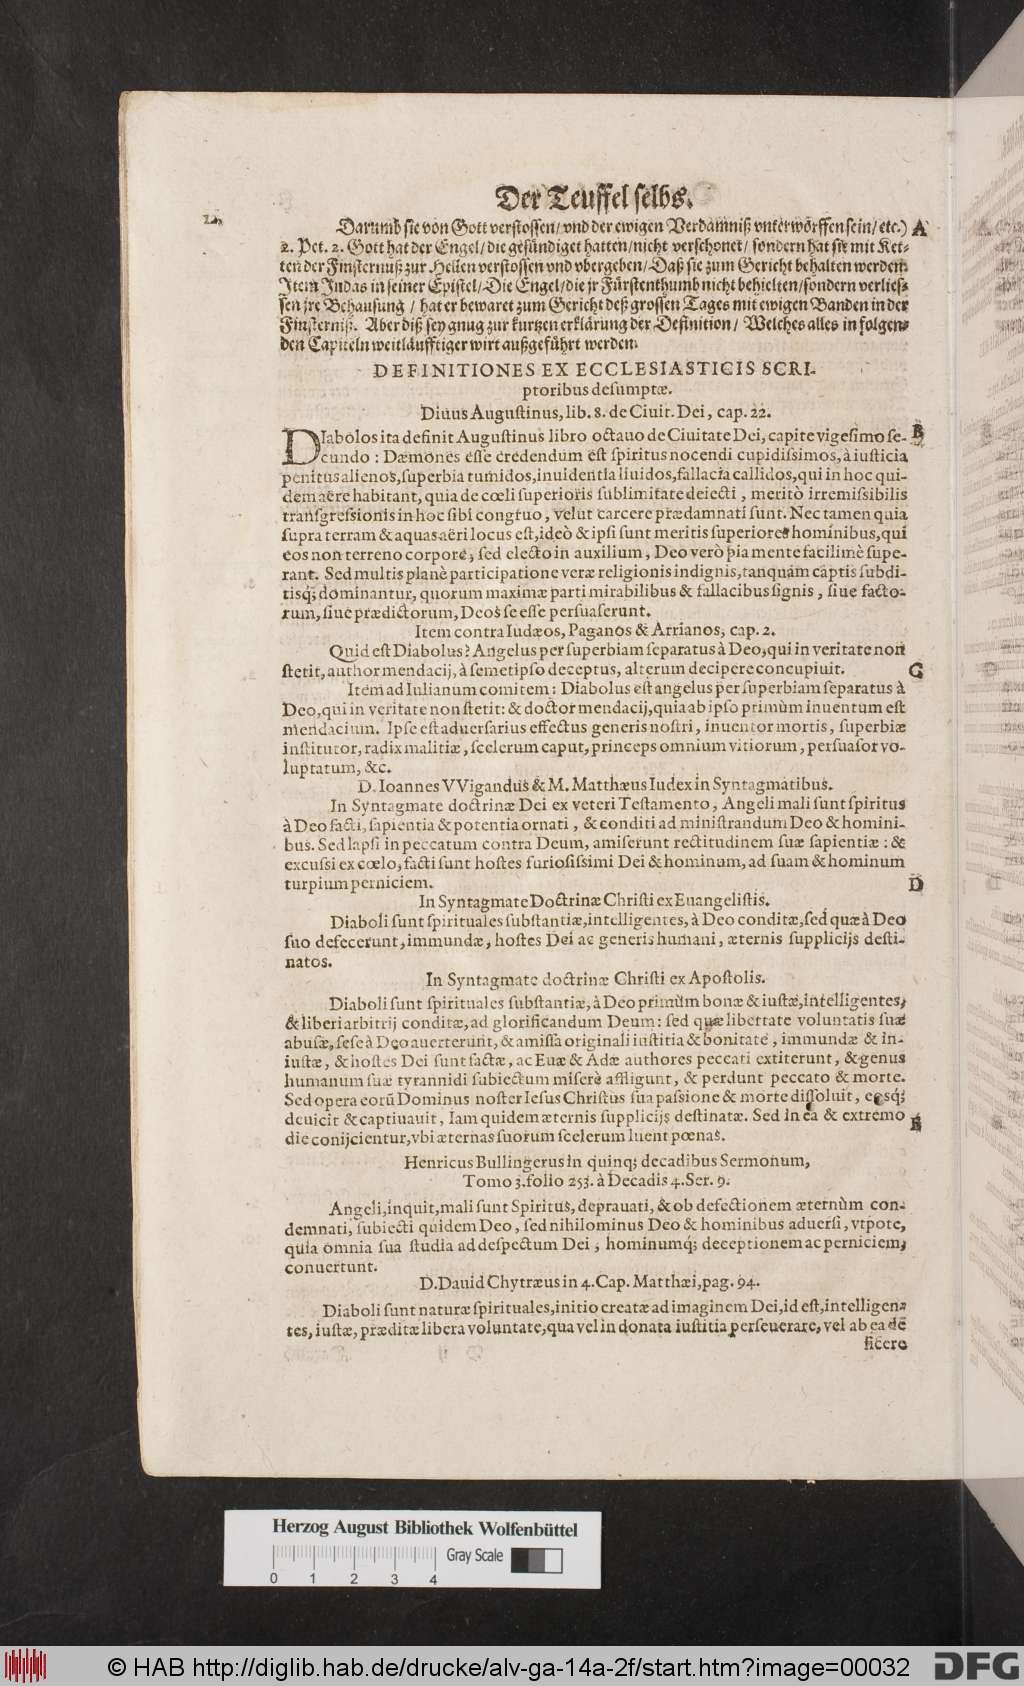 Der Teuffel selbs.
Darumb sie von Gott verstossen/vnd der ewigen Verdamniß vnterworffen sein/etc.) A
2. Pet. 2. Gott hat der Engel/die gesündiget hatten/nicht verschonet/ sondern hat sie mit Ket-
ten der Finsternuß zur Hellen verstossen vnd vbergeben/Daß sie zum Gericht behalten werden.
Item Judas in seiner Epistel/Die Engel/die jr Fürstenthumb nicht behielten/sondern verlies-
sen jre Behausung / hat er bewaret zum Gericht deß grossen Tages mit ewigen Banden in der
Finsterniß. Aber diß sey gnug zur kurtzen erklärung der Definition/ Welches alles in folgen-
den Capiteln weitläufftiger wirt außgeführt werden.
DEFINITIONES EX ECCLESIASTICIS SCRI-
ptoribus desumptæ.
Diuus Augustinus, lib. 8. de Ciuit. Dei, cap. 22.
DIabolos ita definit Augustinus libro octauo de Ciuitate Dei, capite vigesimo se- B
cundo : Dæmones esse credendum est spiritus nocendi cupidissimos, à iusticia
penitus alienos, superbia tumidos, inuidentia liuidos, fallacia callidos, qui in hoc qui-
dem aëre habitant, quia de cœli superioris sublimitate deiecti, meritò irremissibilis
transgressionis in hoc sibi congruo, velut carcere prædamnati sunt. Nec tamen quia
supra terram & aquas aëri locus est, ideò & ipsi sunt meritis superiores hominibus, qui
eos non terreno corpore, sed electo in auxilium, Deo verò pia mente facilimè supe-
rant. Sed multis planè participatione veræ religionis indignis, tanquam captis subdi-
tisq; dominantur, quorum maximæ parti mirabilibus & fallacibus signis, siue facto-
rum, siue prædictorum, Deos se esse persuaserunt.
Item contra Iudæos, Paganos & Arrianos, cap. 2.
Quid est Diabolus? Angelus per superbiam separatus à Deo, qui in veritate non
stetit, author mendacij, à semetipso deceptus, alterum decipere concupiuit. C
Item ad Iulianum comitem: Diabolus est angelus per superbiam separatus à
Deo, qui in veritate non stetit: & doctor mendacij, quia ab ipso primùm inuentum est
mendacium. Ipse est aduersarius effectus generis nostri, inuentor mortis, superbiæ
institutor, radix malitiæ, scelerum caput, princeps omnium vitiorum, persuasor vo-
luptatum, &c.
D. Ioannes VVigandus & M. Matthæus Iudex in Syntagmatibus.
In Syntagmate doctrinæ Dei ex veteri Testamento, Angeli mali sunt spiritus
à Deo facti, sapientia & potentia ornati, & conditi ad ministrandum Deo & homini-
bus. Sed lapsi in peccatum contra Deum, amiserunt rectitudinem suæ sapientiæ : &
excussi ex cœlo, facti sunt hostes furiosissimi Dei & hominum, ad suam & hominum
turpium perniciem. D
In Syntagmate Doctrinæ Christi ex Euangelistis.
Diaboli sunt spirituales substantiæ, intelligentes, à Deo conditæ, sed quæ à Deo
suo defecerunt, immundæ, hostes Dei ac generis humani, æternis supplicijs desti-
natos.
In Syntagmate doctrinæ Christi ex Apostolis.
Diaboli sunt spirituales substantiæ, à Deo primùm bonæ & iustæ, intelligentes,
& liberi arbitrij conditæ, ad glorificandum Deum: sed quæ libertate voluntatis suæ
abusæ, sese à Deo auerterunt, & amissa originali iustitia & bonitate, immundæ & in-
iustæ, & hostes Dei sunt factæ, ac Euæ & Adæ authores peccati extiterunt, & genus
humanum suæ tyrannidi subiectum miserè affligunt, & perdunt peccato & morte.
Sed opera eorũ Dominus noster Iesus Christus sua passione & morte dissoluit, eosq;
deuicit & captiuauit, Iam quidem æternis supplicijs destinatæ. Sed in ea & extremo E
die conijcientur, vbi æternas suorum scelerum luent pœnas.
Henricus Bullingerus in quinq; decadibus Sermonum,
Tomo 3. folio 253. à Decadis 4. Ser. 9.
Angeli, inquit, mali sunt Spiritus, deprauati, & ob defectionem æternùm con-
demnati, subiecti quidem Deo, sed nihilominus Deo & hominibus aduersi, vtpote,
quia omnia sua studia ad despectum Dei, hominumq; deceptionem ac perniciem,
conuertunt.
D. Dauid Chytræus in 4. Cap. Matthæi, pag. 94.
Diaboli sunt naturæ spirituales, initio creatæ ad imaginem Dei, id est, intelligen-
tes, iustæ, præditæ libera voluntate, qua vel in donata iustitia perseuerare, vel ab ea de
ficere
Herzog August Bibliothek Wolfenbüttel
Gray Scale
0 1 2 3 4
© HAB http://diglib.hab.de/drucke/alv-ga-14a-2f/start.htm?image=00032
DFG